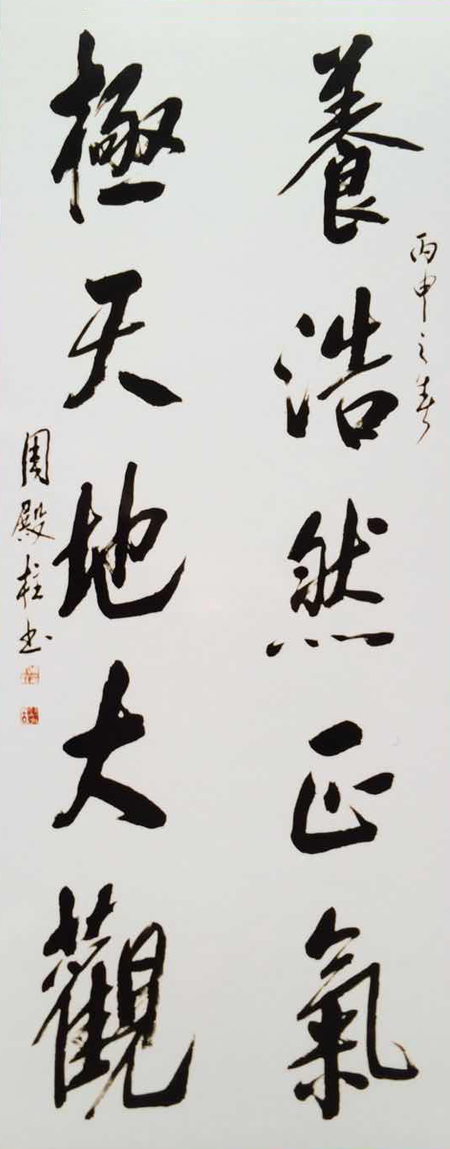 丙申之春
養浩然正氣
極天地大觀
周殿柱书